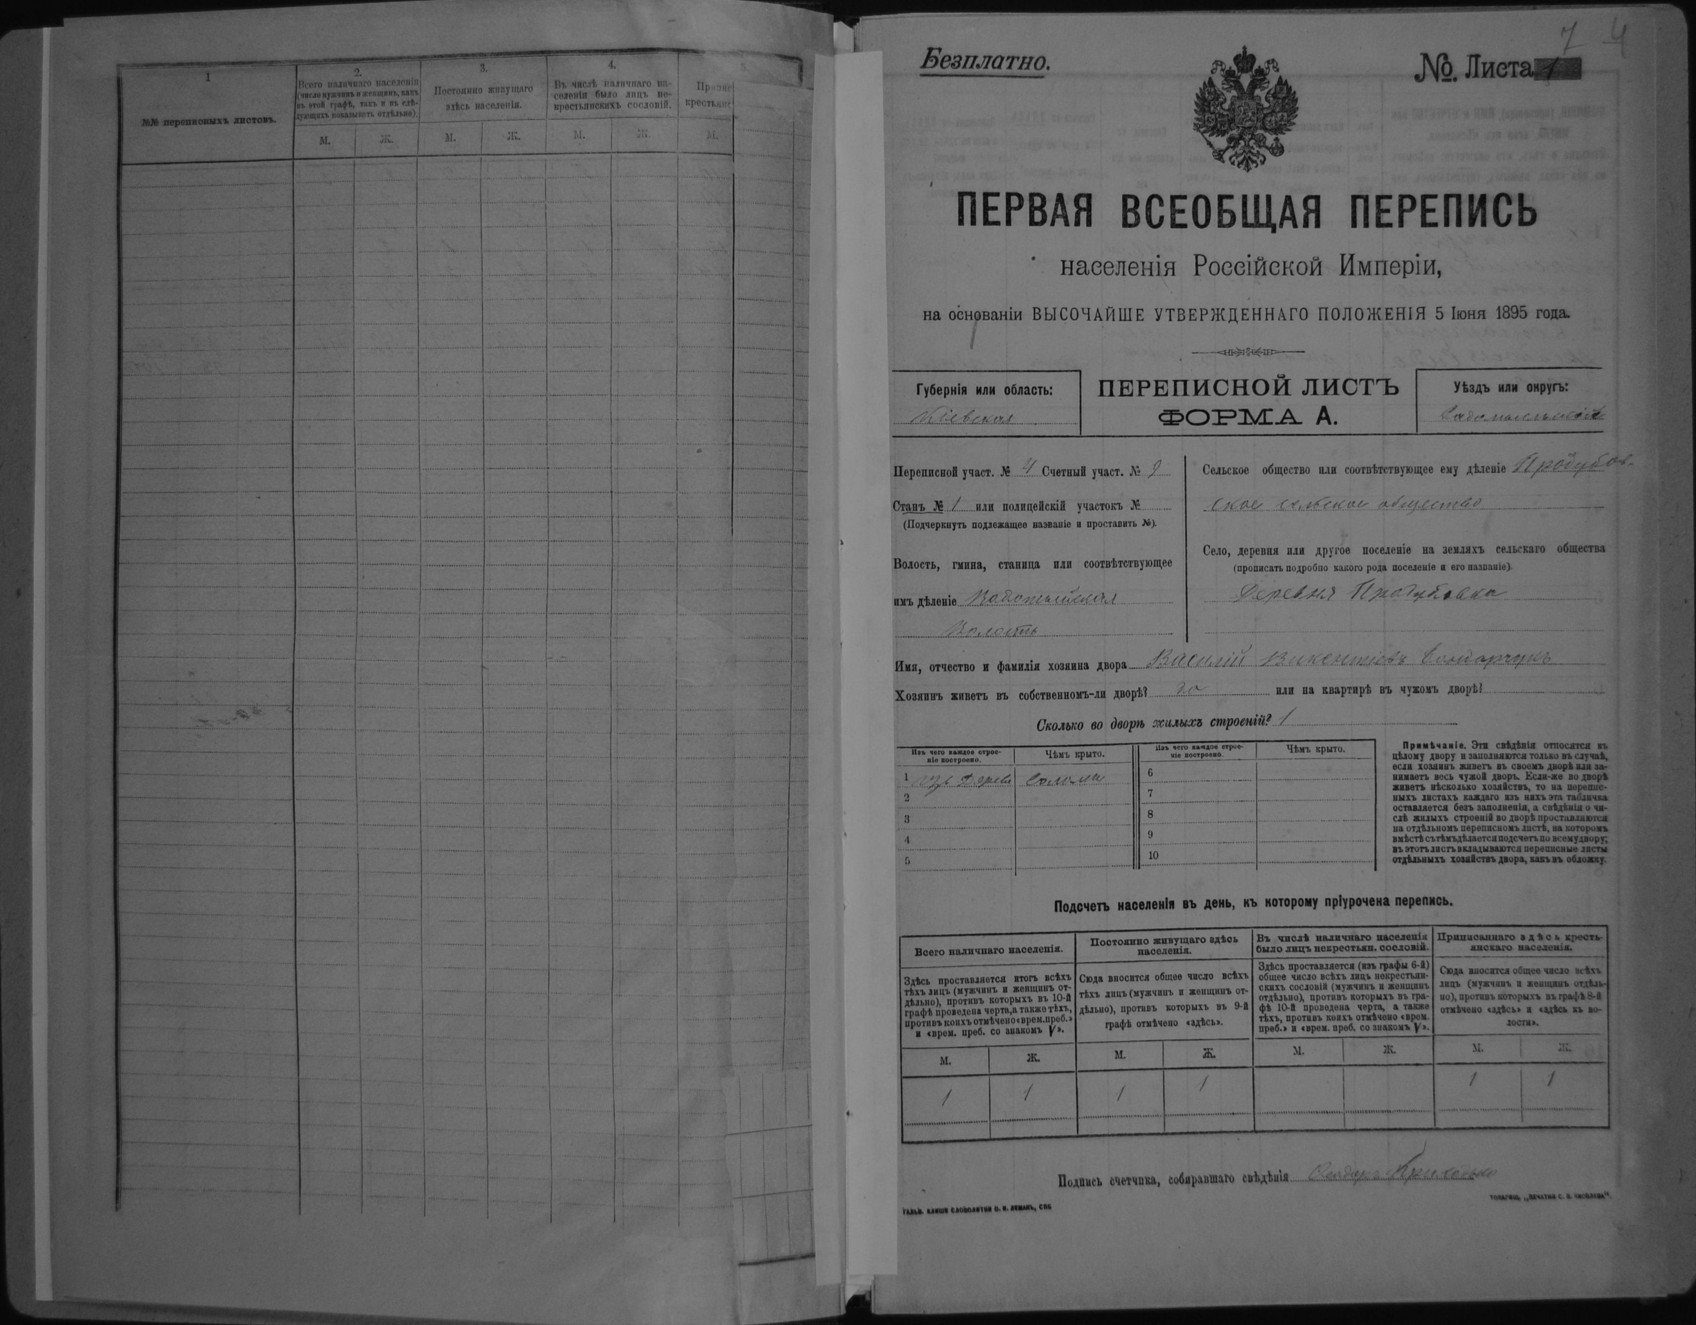 1
№№ переписныхъ листовъ.
2.
Всего наличнаго населенія
(число мужчинъ и женщинъ, какъ
въ этой графѣ, такъ и въ слѣ-
дующихъ показывать отдѣльно).
М. Ж.
3.
Постоянно живущаго
здѣсь населенія.
М. Ж.
4.
Въ числѣ наличнаго на-
селенія было лицъ не-
крестьянскихъ сословій.
М. Ж.
5.
крестьянс
М.
7 4
Безплатно.
№. Листа
ПЕРВАЯ ВСЕОБЩАЯ ПЕРЕПИСЬ
населенія Россійской Имперіи,
на основаніи ВЫСОЧАЙШЕ УТВЕРЖДЕННАГО ПОЛОЖЕНІЯ 5 Іюня 1895 года.
Губернія или область:
Кіевская
ПЕРЕПИСНОЙ ЛИСТЪ
ФОРМА А.
Уѣздъ или округъ:
Радомысльскій
Переписной участ. № 4 Счетный участ. № 9
Станъ № 1 или полицейскій участокъ №
(Подчеркнуть подлежащее названіе и проставить №).
Волость, гмина, станица или соотвѣтствующее
имъ дѣленіе
Волость
Сельское общество или соотвѣтствующее ему дѣленіе
ское сельское общество
Село, деревня или другое поселеніе на земляхъ сельскаго общества
(прописать подробно какого рода поселеніе и его названіе).
Деревня
Имя, отчество и фамилія хозяина двора Василій Викентіевъ Бондарчукъ
Хозяинъ живетъ въ собственномъ-ли дворѣ? да или на квартирѣ въ чужомъ дворѣ?
Сколько во дворѣ жилыхъ строеній? 1
Изъ чего каждое строе-
ніе построено.
Чѣмъ крыто.
Изъ чего каждое строе-
ніе построено.
Чѣмъ крыто.
1 изъ дерева соломы
2
3
4
5
6
7
8
9
10
Примѣчаніе. Эти свѣдѣнія относятся къ
цѣлому двору и заполняются только въ случаѣ,
если хозяинъ живетъ въ своемъ дворѣ или за-
нимаетъ весь чужой дворъ. Если-же во дворѣ
живетъ нѣсколько хозяйствъ, то на перепис-
ныхъ листахъ каждаго изъ нихъ эта табличка
оставляется безъ заполненія, а свѣдѣнія о чи-
слѣ жилыхъ строеній во дворѣ проставляются
на отдѣльномъ переписномъ листѣ, на которомъ
вмѣстѣ съ тѣмъ дѣлается подсчетъ по всему двору;
въ этотъ листъ вкладываются переписные листы
отдѣльныхъ хозяйствъ двора, какъ въ обложку.
Подсчетъ населенія въ день, къ которому пріурочена перепись.
Всего наличнаго населенія.
Здѣсь проставляется итогъ всѣхъ
тѣхъ лицъ (мужчинъ и женщинъ от-
дѣльно), противъ которыхъ въ 10-й
графѣ проведена черта, а также тѣхъ,
противъ коихъ отмѣчено «врем. преб.»
и «врем. преб. со знакомъ V».
М. Ж.
1 1
Постоянно живущаго здѣсь
населенія.
Сюда вносится общее число всѣхъ
тѣхъ лицъ (мужчинъ и женщинъ от-
дѣльно), противъ которыхъ въ 9-й
графѣ отмѣчено «здѣсь».
М. Ж.
1 1
Въ числѣ наличнаго населенія
было лицъ некрестьян. сословій.
Здѣсь проставляется (изъ графы 6-й)
общее число всѣхъ лицъ некрестьян-
скихъ сословій (мужчинъ и женщинъ
отдѣльно), противъ которыхъ въ гра-
фѣ 10-й проведена черта, а также
тѣхъ, противъ коихъ отмѣчено «врем.
преб.» и «врем. преб. со знакомъ V».
М. Ж.
Приписаннаго здѣсь кресть-
янскаго населенія.
Сюда вносится общее число всѣхъ
лицъ (мужчинъ и женщинъ отдѣль-
но), противъ которыхъ въ графѣ 8-й
отмѣчено «здѣсь» и «здѣсь въ во-
лости».
М. Ж.
1 1
Подпись счетчика, собиравшаго свѣдѣнія